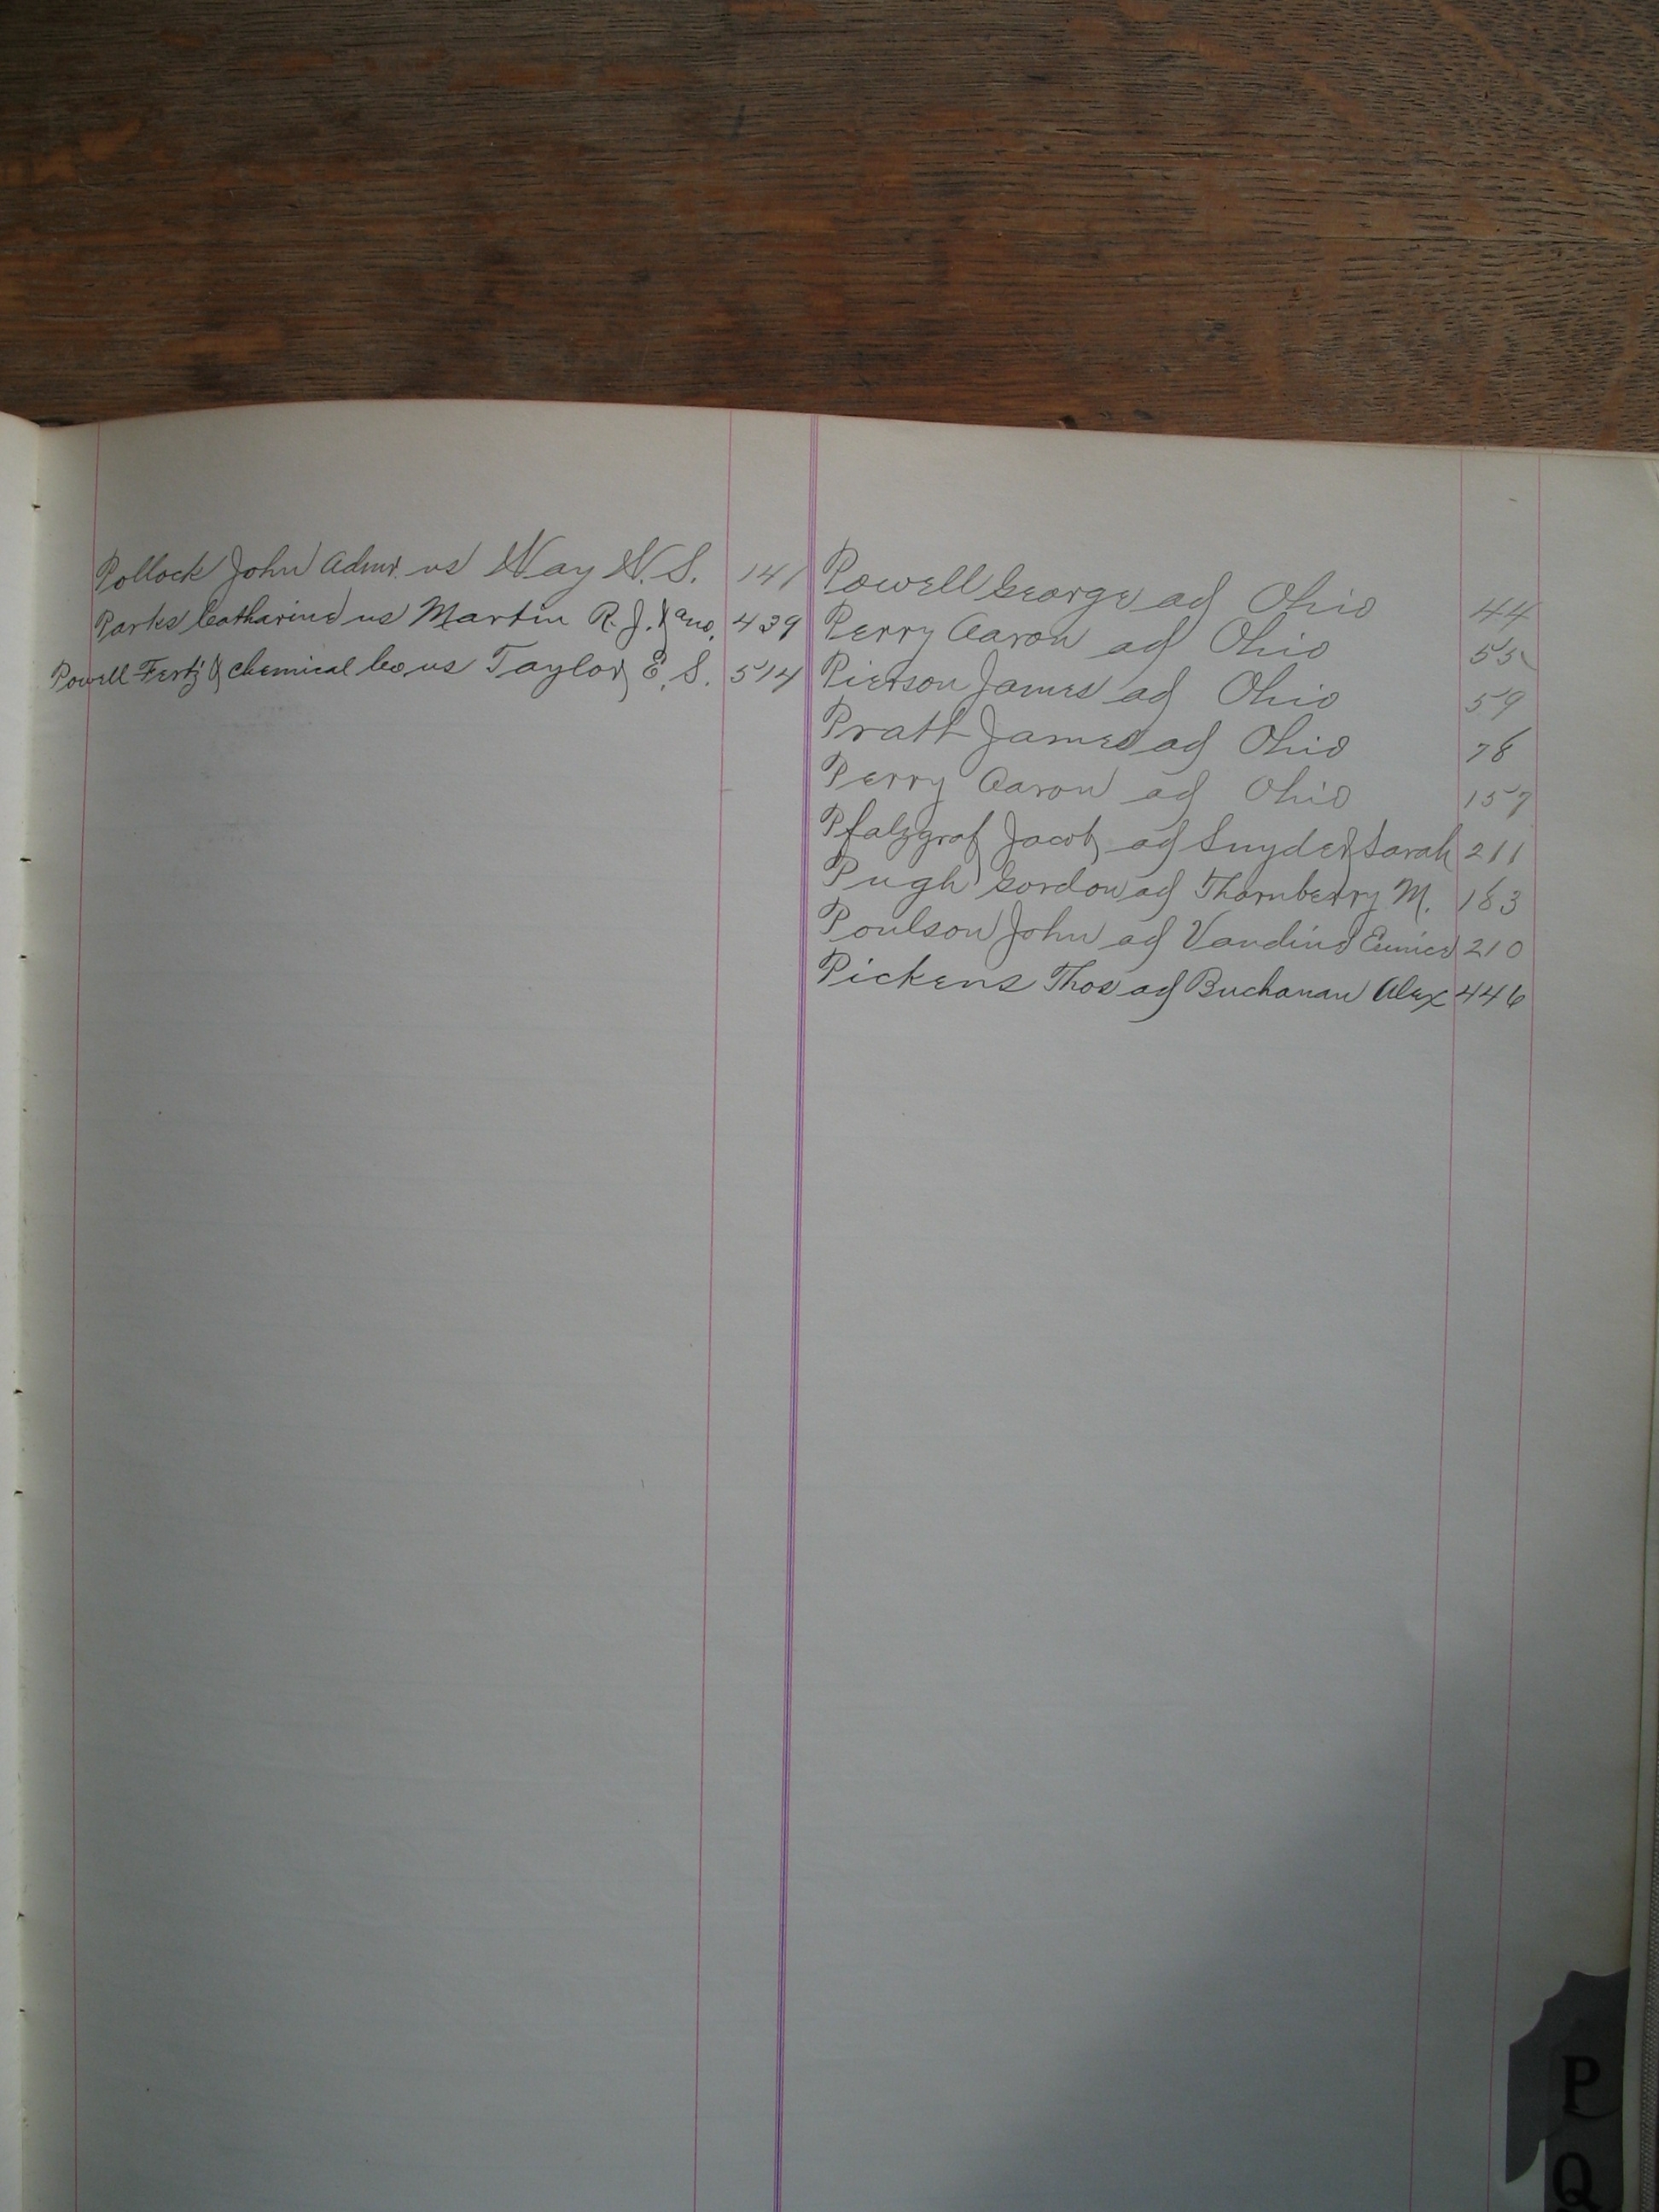 Pollock John Admr. vs Way N. S. 141
Parks Catharine vs Martin R. J. & ano. 439
Powell Fertz & Chemical Co vs Taylor E. S. 514
Powell George ad Ohio 44
Perry Aaron ad Ohio 55
Pierson James ad Ohio 59
Pratt James ad Ohio 78
Perry Aaron ad Ohio 157
Pfalzgraf Jacob ad Snyder Sarah 211
Pugh Gordon ad Thornberry M. 183
Poulson John ad Vandine Eunice 210
Pickens Thos ad Buchanan Alex 446
P
Q